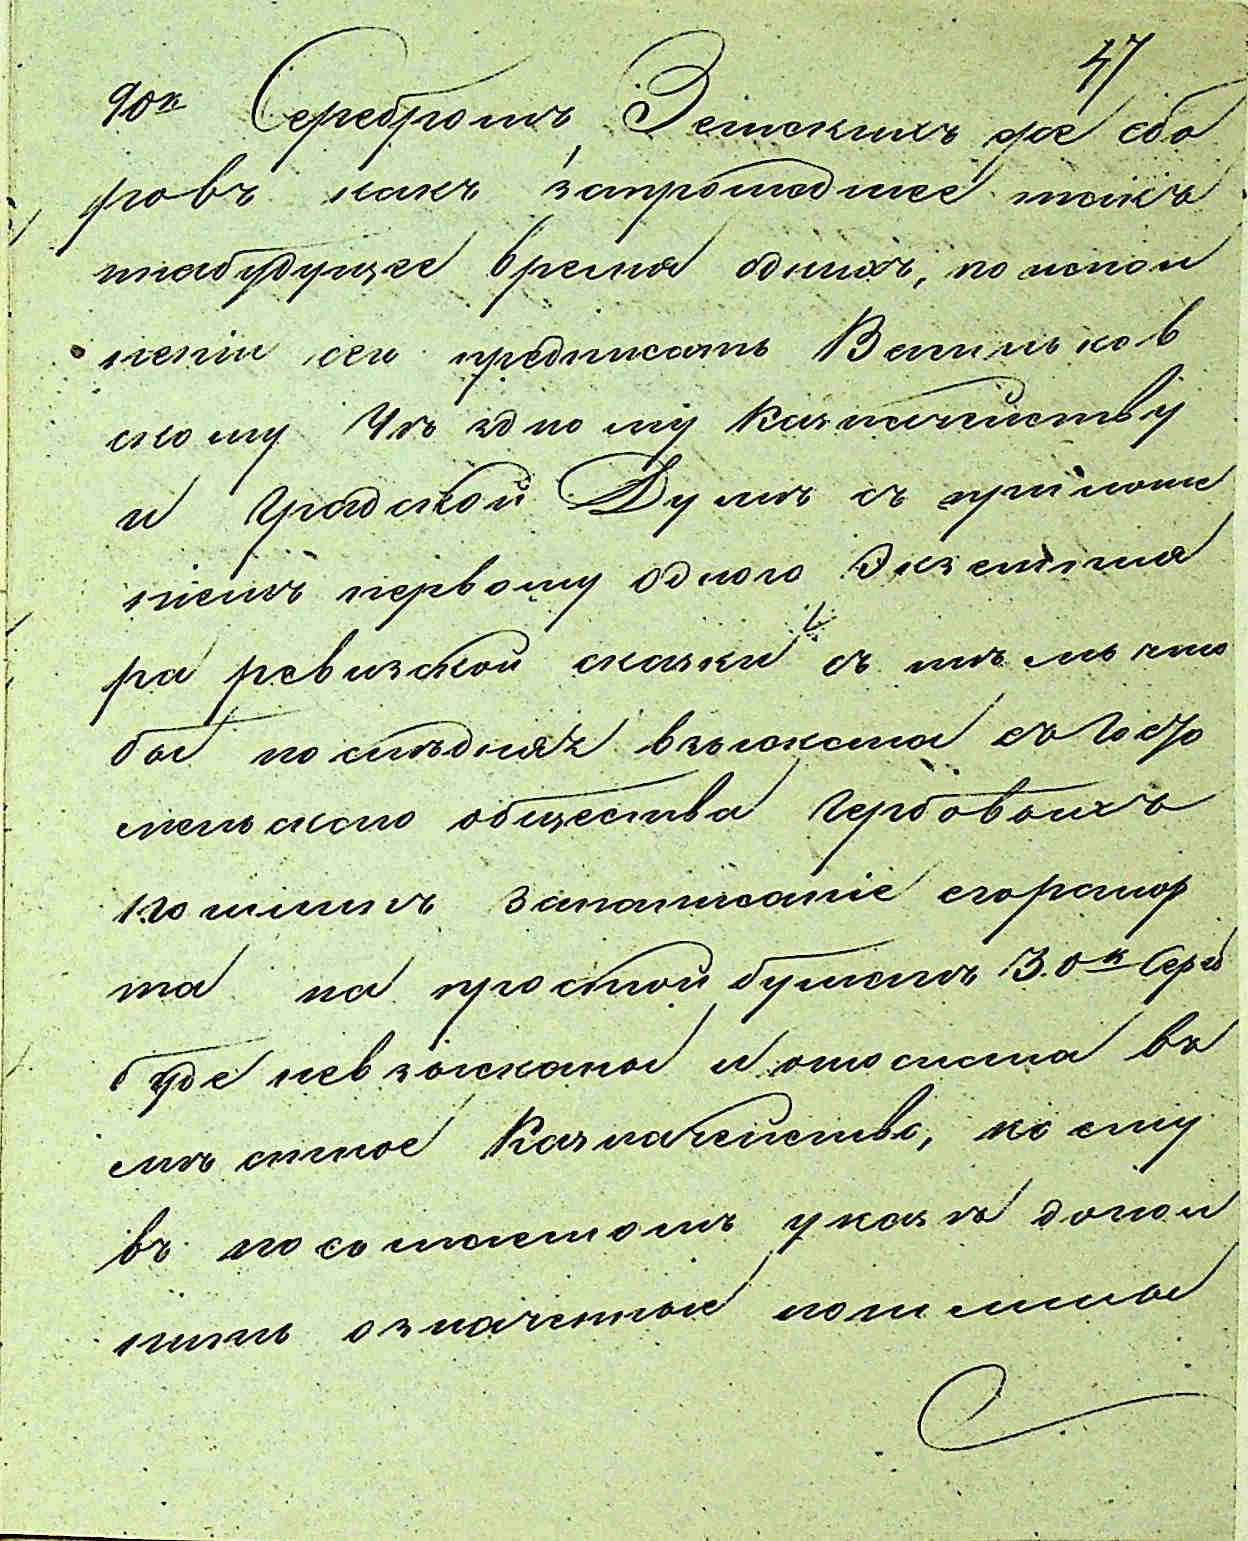 47
90к Серебромъ, Земскихъ же сбо
ровъ какъ запрошедшее такъ
инабудущее время однихъ, по испол
неніи сего предписать Васильков
скому Уѣздному Казначейству
и Градской Думѣ съ приложе
ніемъ первому одного Экземпля
ра ревизской сказки съ тѣмъ что
бы послѣдняя взыскала съ
мельскаго общества Гербовыхъ
пошлинъ занаписаніе его рапор
та на простой бумагѣ 30к Сереб
буде невзысканы и отослала въ
мѣстное Казначейство, коему
въ посылаемомъ указѣ допол
нить означенные пошлины